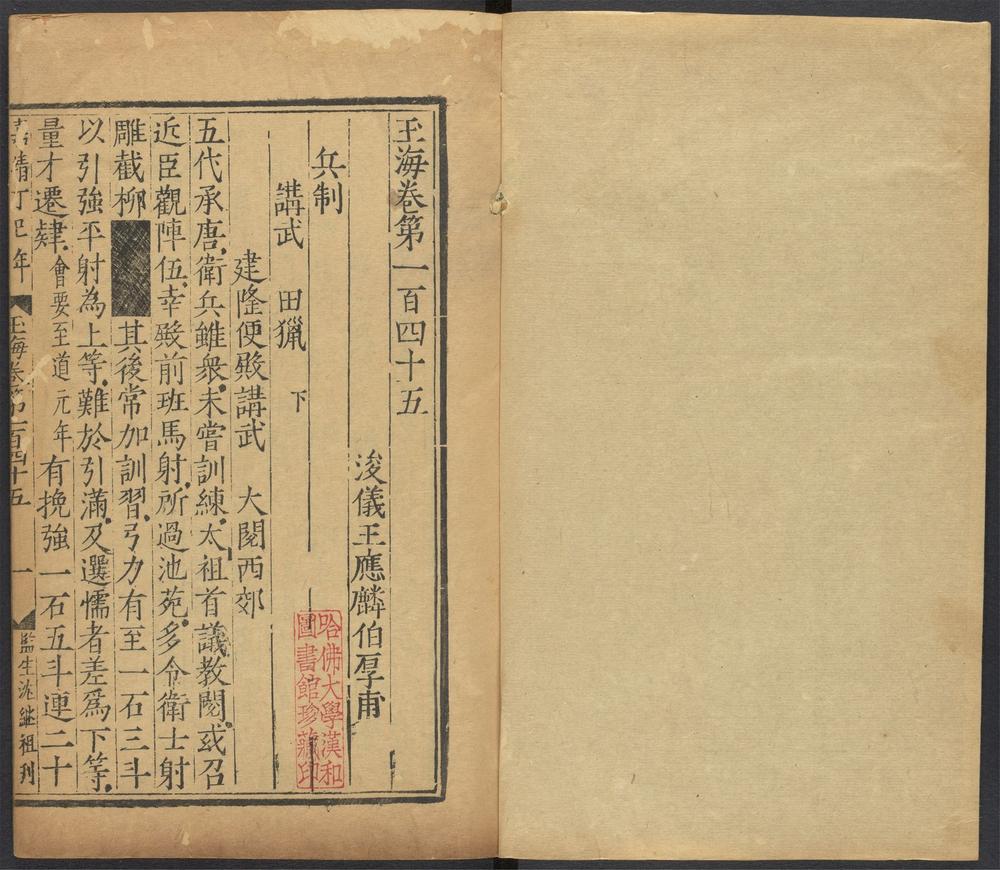 玉海卷第一百四十五
浚儀王應麟伯厚甫
兵制
講武 田獵 下
建隆便殿講武 大閱西郊
五代承唐衛兵雖衆未嘗訓練太祖首議教閱或召
近臣觀陣伍幸殿前班馬射所過池苑多令衛士射
雕截柳其後常加訓習弓力有至一石三斗
以引強平射為上等難於引滿及選懦者差爲下等
量才遷肄會要至道元年有挽強一石五斗連二十
靖丁巳年 玉海卷第一百四十五 一 監生沈繼祖刋
哈佛大學漢和
圖書館珍藏印